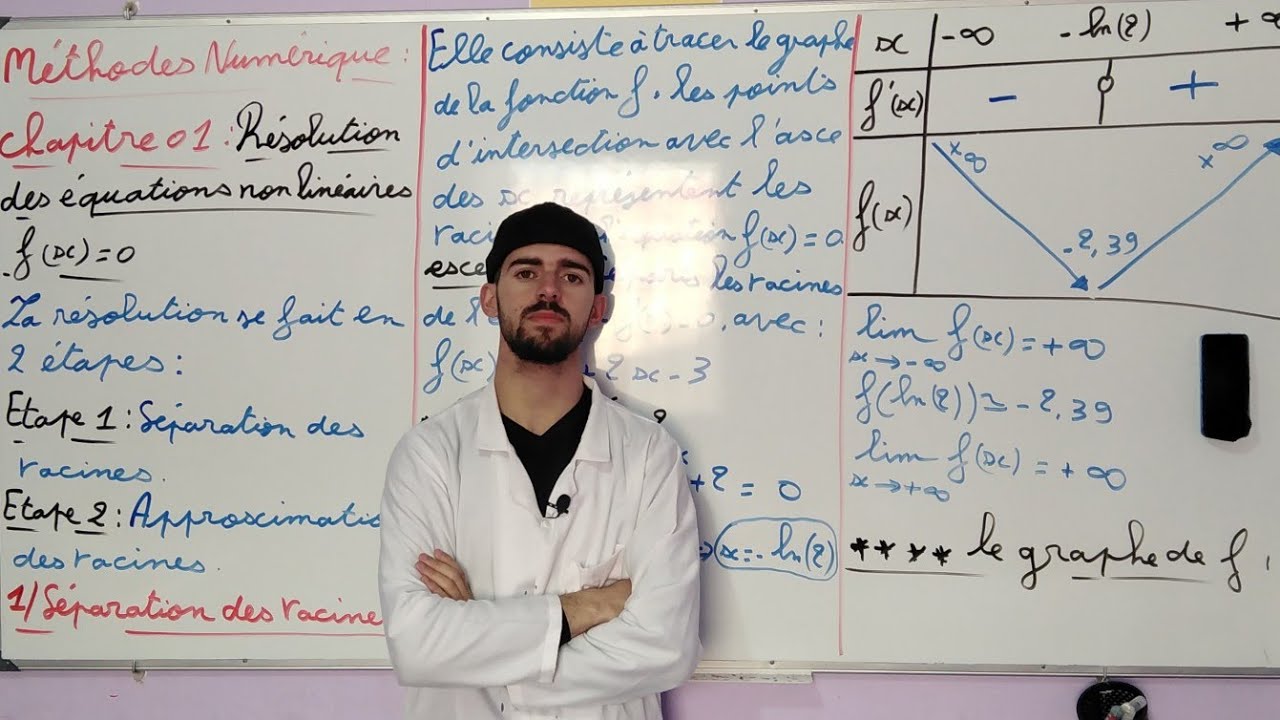 Méthodes Numérique :
Chapitre 01 : Résolution
des équations non linéaires
f(x) = 0
La résolution se fait en
2 étapes :
Etape 1 : Séparation des
racines.
Etape 2 : Approximatio
des racines.
1/ Séparation des racine
Elle consiste à tracer le graphe
de la fonction f. les points
d'intersection avec l'asce
des x représentent les
raci f(x) = 0
les racines
de l' = 0, avec :
f(x) 2x - 3
+ 2 = 0
x = - ln(2)
x -∞ - ln(2) + ∞
f'(x) - +
f(x) +∞ +∞
- 2,39
lim f(x) = + ∞
x → -∞
f(ln(2)) ≃ - 2,39
lim f(x) = + ∞
x → +∞
**** le graphe de f :